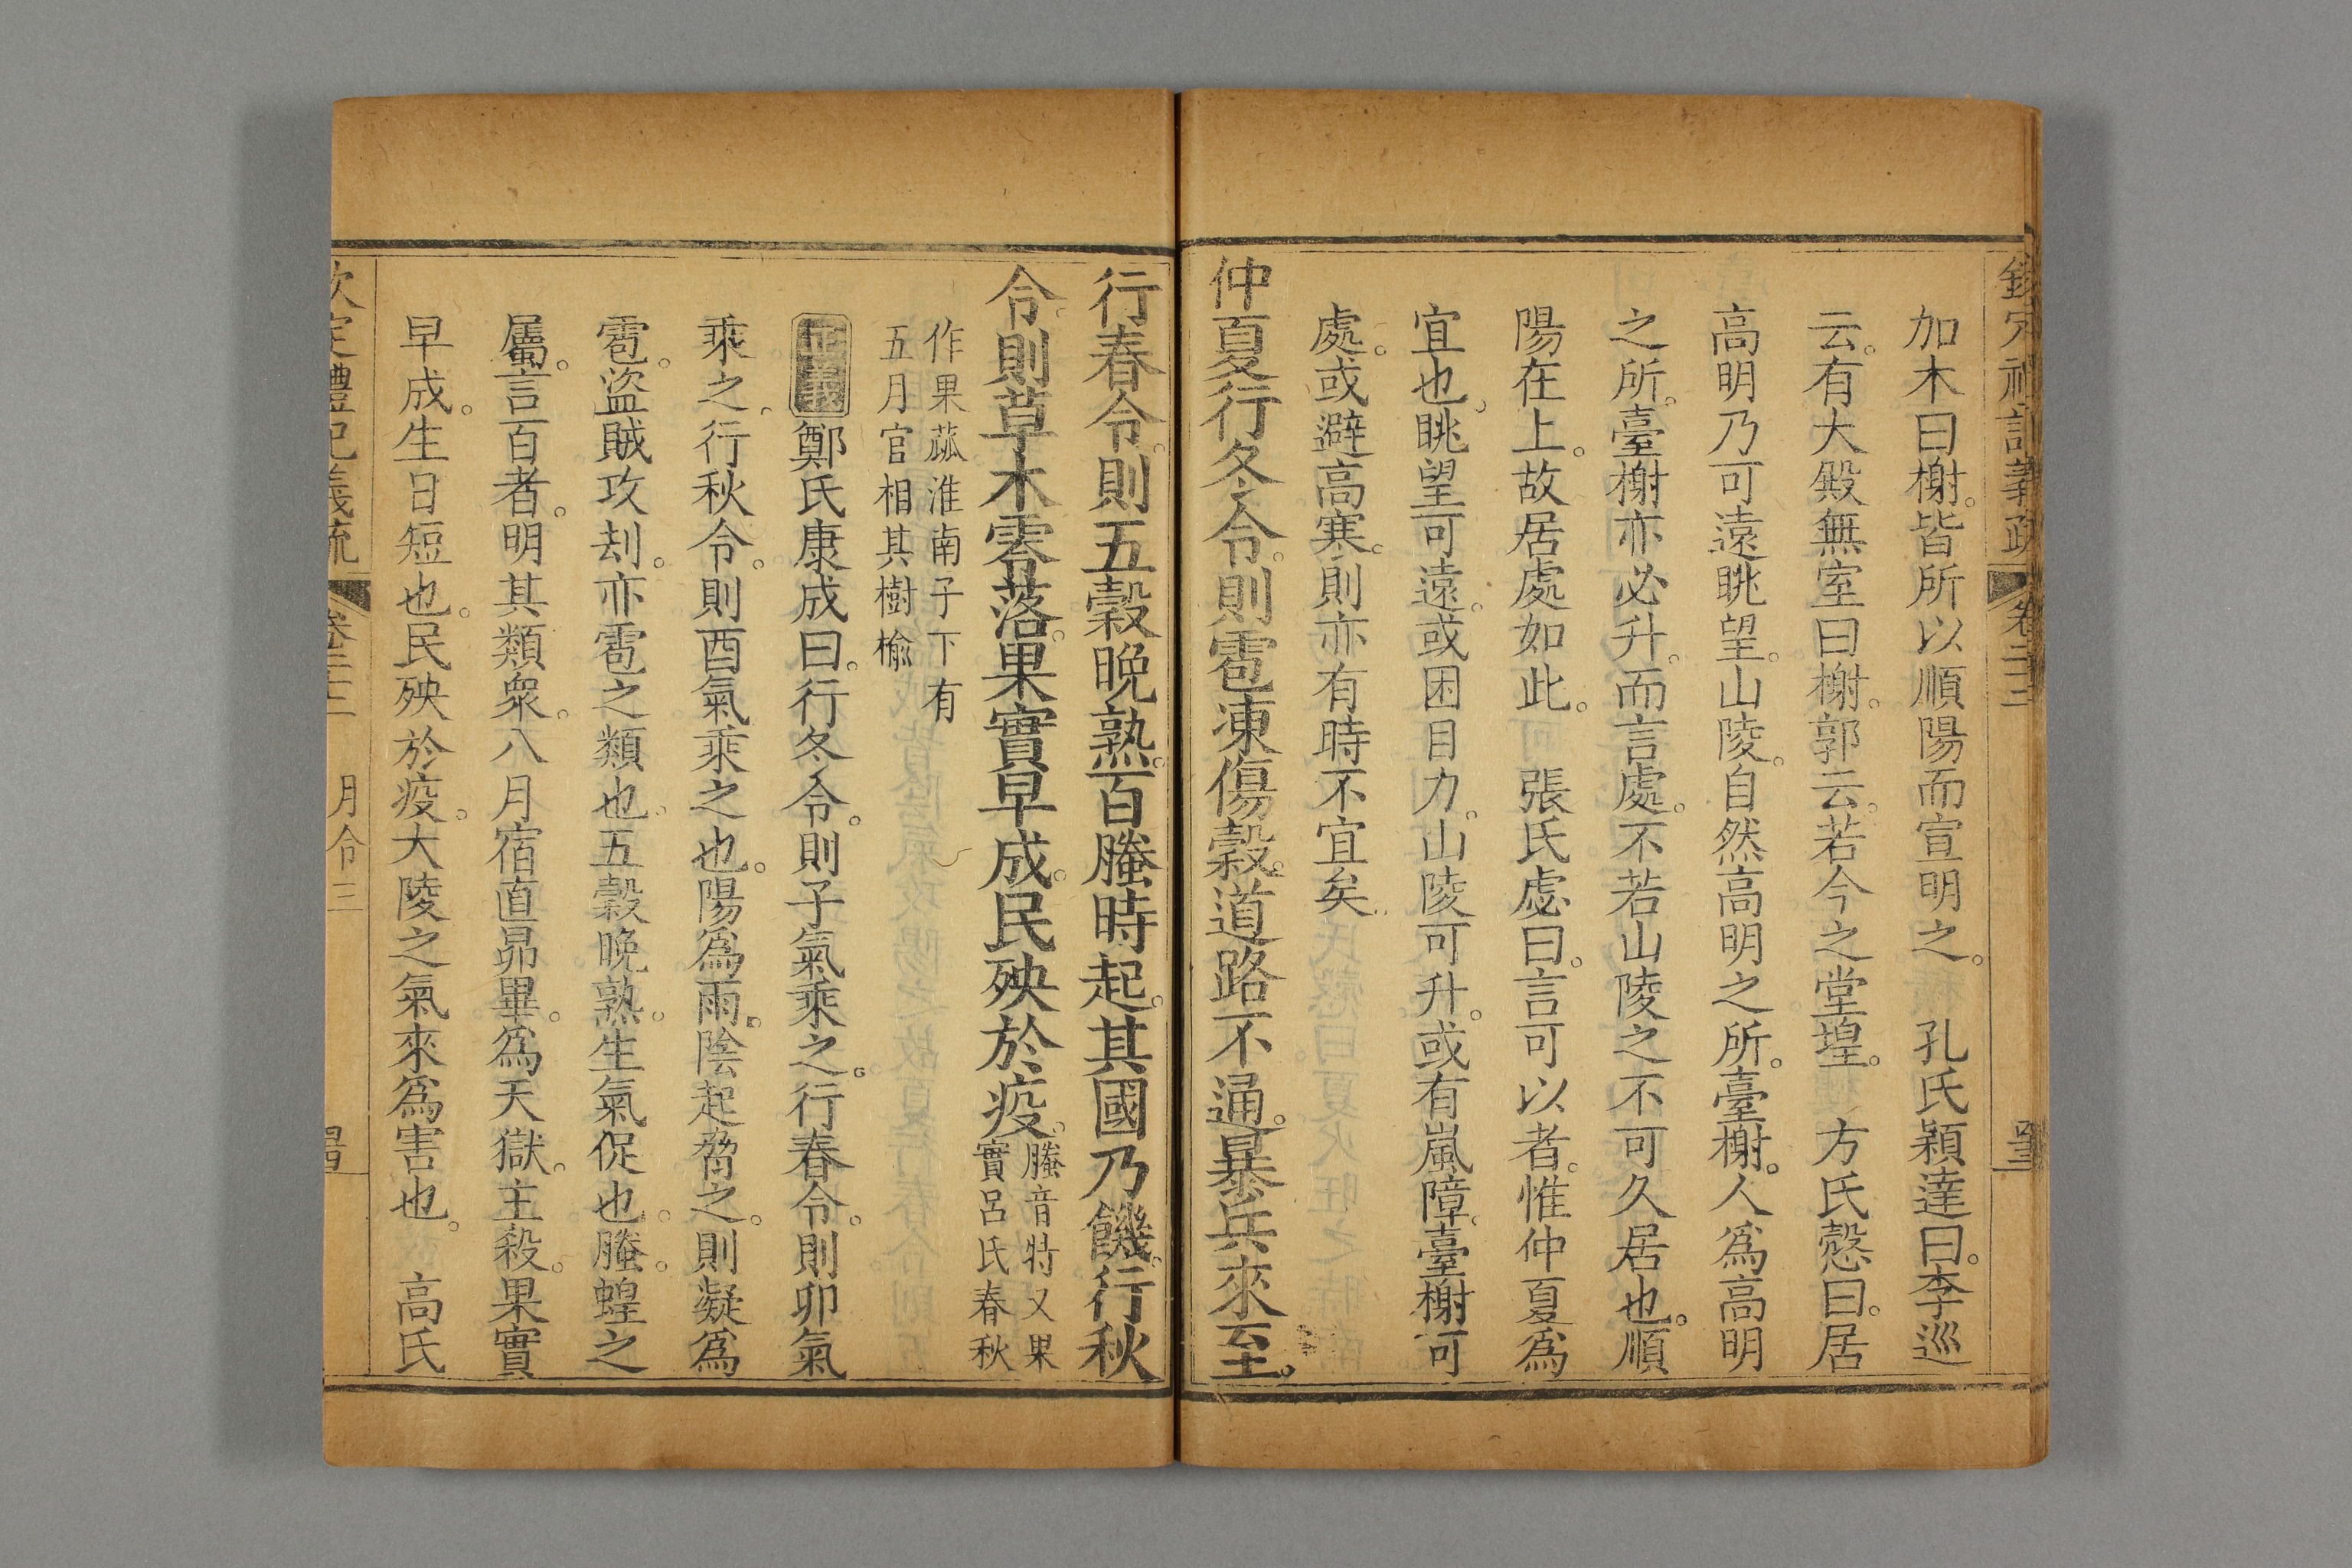 欽定禮記義疏 卷二十三
加木曰榭。皆所以順陽而宣明之。 孔氏穎達曰。李巡
云。有大殿無室曰榭。郭云。若今之堂堭。 方氏慤曰。居
高明乃可遠眺望。山陵。自然高明之所。臺榭。人爲高明
之所。臺榭亦必升。而言處。不若山陵之不可久居也。順
陽在上。故居處如此。 張氏虙曰。言可以者。惟仲夏爲
宜也。眺望可遠。或困目力。山陵可升。或有嵐障。臺榭可
處。或避高寒。則亦有時不宜矣
仲夏行冬令。則雹凍傷穀。道路不通。暴兵來至。
行春令。則五穀晚熟。百螣時起。其國乃饑。行秋
令。則草木零落。果實早成。民殃於疫。螣音特又果
實呂氏春秋
作果蓏淮南子下有
五月官相其樹楡
正義鄭氏康成曰。行冬令。則子氣乘之。行春令。則卯氣
乘之。行秋令。則酉氣乘之也。陽爲雨。陰起脅之。則凝爲
雹。盜賊攻刦。亦雹之類也。五穀晚熟。生氣促也。螣。蝗之
屬。言百者。明其類衆。八月宿直昴畢。爲天獄。主殺。果實
早成。生日短也。民殃於疫。大陵之氣來爲害也。 高氏
欽定禮記義疏 卷二十三 月令三